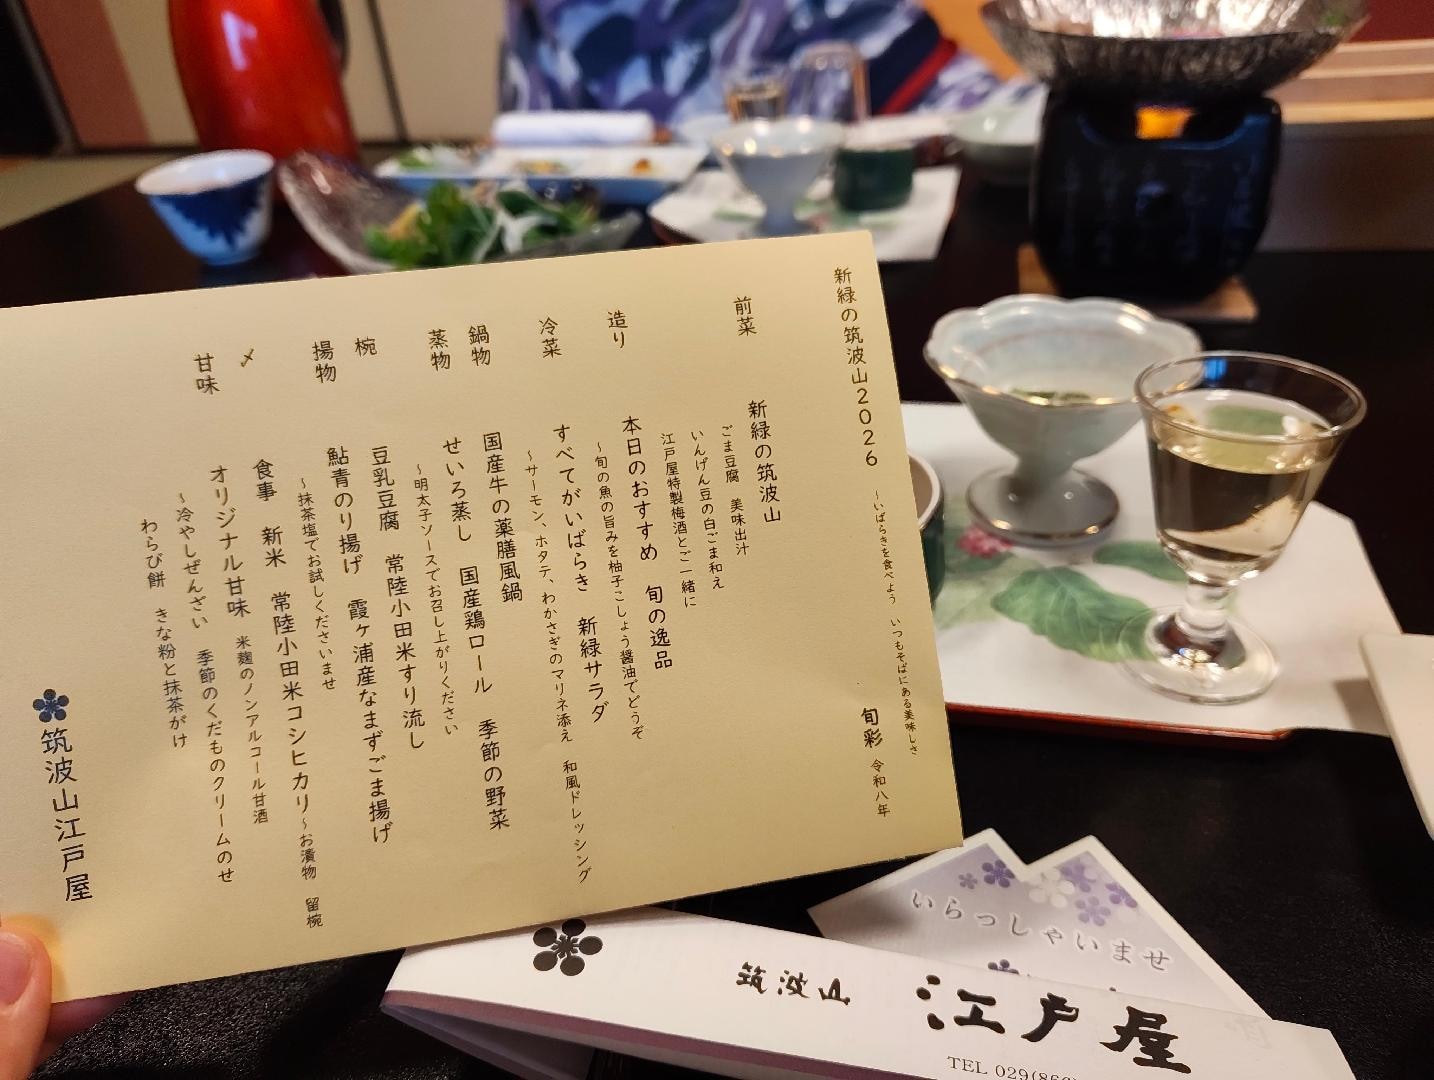 新緑の筑波山2026
～いばらきを食べよう　いつもそばにある美味しさ
旬彩　令和八年
前菜　新緑の筑波山
ごま豆腐　美味出汁
いんげん豆の白ごま和え
江戸屋特製梅酒とご一緒に
造り　本日のおすすめ　旬の逸品
～旬の魚の旨みを柚子こしょう醤油でどうぞ
冷菜　すべてがいばらき　新緑サラダ
～サーモン、ホタテ、わかさぎのマリネ添え　和風ドレッシング
鍋物　国産牛の薬膳風鍋　季節の野菜
蒸物　せいろ蒸し　国産鶏ロール
～明太子ソースでお召し上がりください
椀　豆乳豆腐　常陸小田米すり流し
揚物　鮎青のり揚げ　霞ヶ浦産なまずごま揚げ
～抹茶塩でお試しくださいませ
〆　食事　新米　常陸小田米コシヒカリ～お漬物　留椀
甘味　オリジナル甘味　米麹のノンアルコール甘酒
～冷やしぜんざい　季節のくだものクリームのせ
わらび餅　きな粉と抹茶がけ
筑波山江戸屋
いらっしゃいませ
筑波山　江戸屋
TEL 029(866)